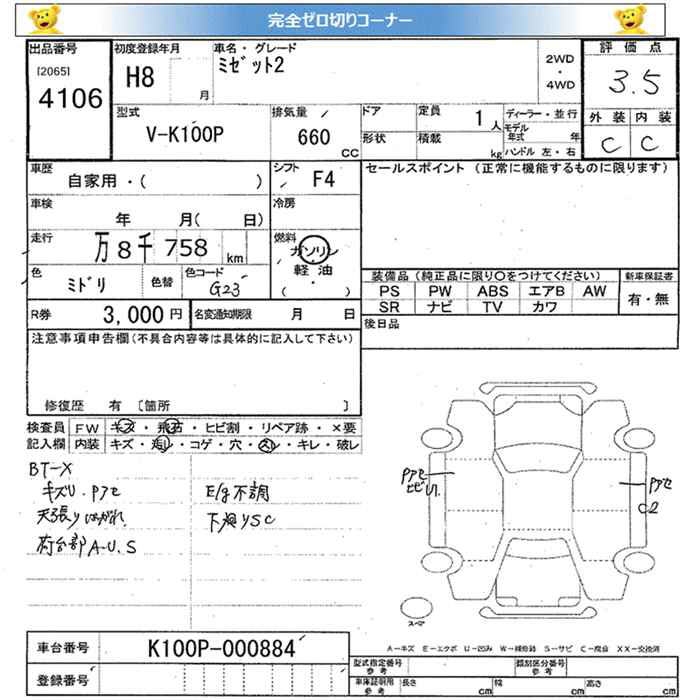 完全ゼロ切りコーナー
出品番号 初度登録年月 車名・グレード 評価点
[2065] H8 ミゼット2 2WD・4WD 3.5
4106 月
型式 排気量 ドア 定員 1人 ディーラー・並行 外装 内装
V-K100P 660 CC 形状 積載 kg モデル年式 年 C C
ハンドル 左・右
車歴 自家用・( ) シフト F4 セールスポイント (正常に機能するものに限ります)
車検 年 月( 日) 冷房
走行 万8千758km 燃料 ガソリン・軽油・( )
色 ミドリ 色替 色コード G23 装備品(純正品に限り○をつけてください) 新車保証書
PS PW ABS エアB AW 有・無
SR ナビ TV カワ
R券 3,000円 名変通知期限 月 日 後日品
注意事項申告欄(不具合内容等は具体的に記入して下さい)
修復歴 有 〔箇所 〕
検査員 FW キズ・飛石・ヒビ割・リペア跡・×要
記入欄 内装 キズ・汚レ・コゲ・穴・スレ・キレ・破レ
BT-X
キズU.Pアセ E/g不調
天張りはがれ 下廻りSC
荷台部A-U.S
Pアセ ヒビU1
Pアセ C2
スペア
車台番号 K100P-000884
A-キズ E-エクボ U-凹み W-補修跡 S-サビ C-腐食 XX-交換済
登録番号 型式指定番号 参考 類別区分番号 参考
車庫証明用 参考 長さ cm 幅 cm 高さ cm